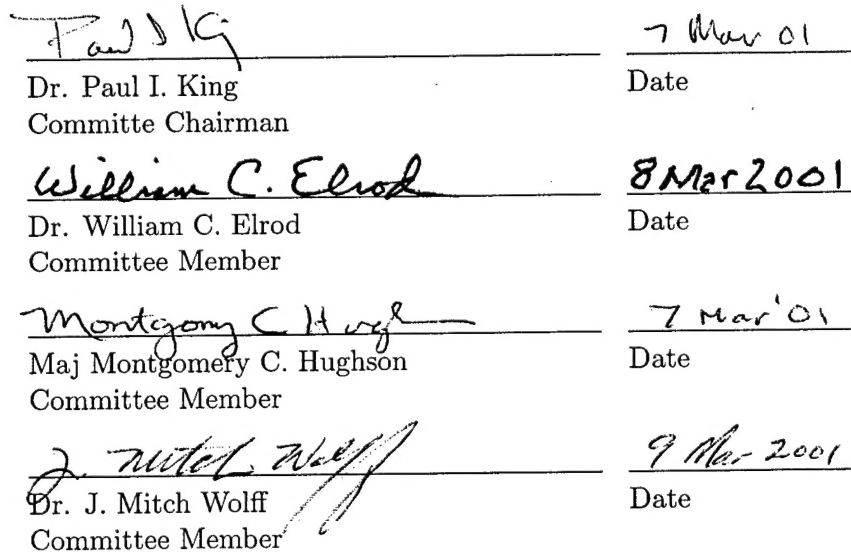 Paul I King 7 Mar 01
Dr. Paul I. King Date
Committe Chairman
William C. Elrod 8 Mar 2001
Dr. William C. Elrod Date
Committee Member
Montgomery C Hugh 7 Mar '01
Maj Montgomery C. Hughson Date
Committee Member
J. Mitch Wolff 9 Mar 2001
Dr. J. Mitch Wolff Date
Committee Member